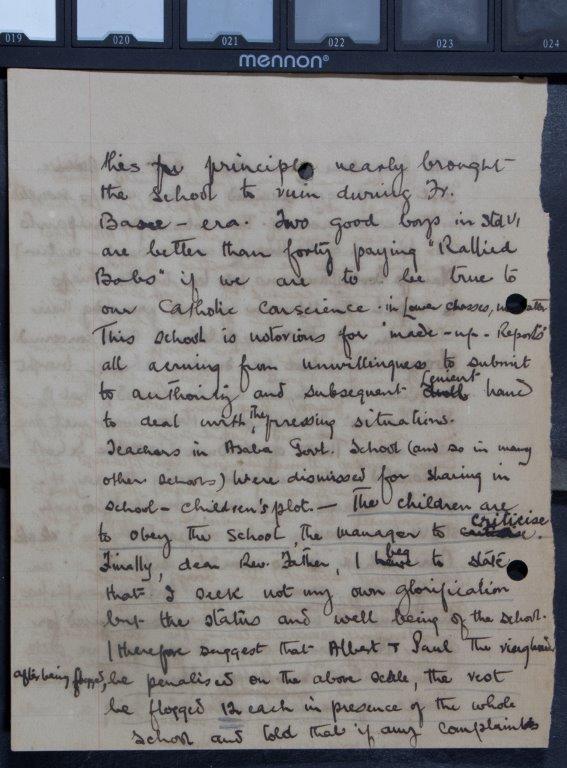 019 020 021 022 023 024
mennon®
this for principle nearly brought
the school to ruin during Fr.
era. Two good boys in Std VI
are better than forty paying "Rallied
Bobs" if we are to be true to
our Catholic Conscience. in Lower classes, no matter
This school is notorious for "made-up-Reports"
all arising from unwillingness to submit
to authority and subsequent lenient hand
to deal with the pressing situations.
Teachers in Asaba Govt. School (and so in many
other schools) were dismissed for sharing in
school-children's plot. — The children are
to obey the school, the manager to criticise.
Finally, dear Rev. Father, I beg to state
that I seek not my own glorification
but the status and well being of the school.
I therefore suggest that Albert & Paul the
after being flogged, be penalised on the above scale, the rest
be flogged 12 each in presence of the whole
school and told that if any complaints